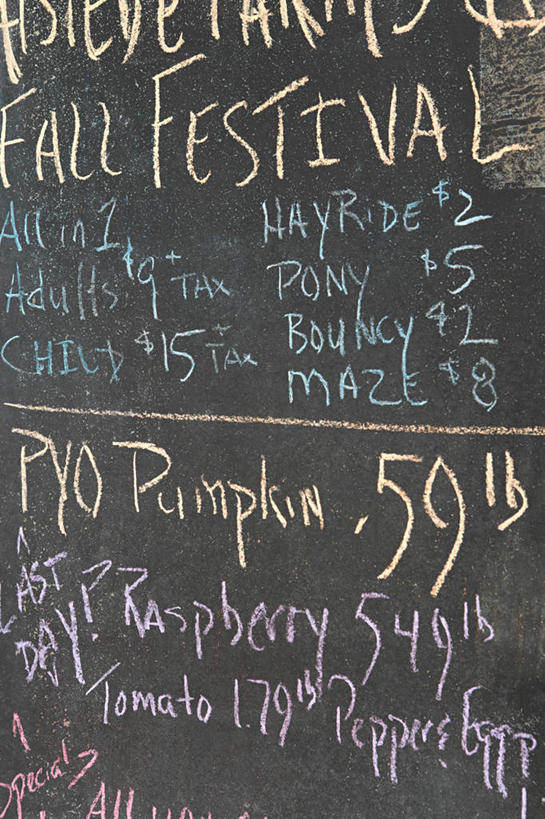 FARMS
FALL FESTIVAL
All in 1
Adults $9 + TAX
CHILD $15 + TAX
HAYRIDE $2
PONY $5
BOUNCY $2
MAZE $8
PYO Pumpkin .59 lb
LAST DAY! Raspberry 549 lb
Tomato 1.79 lb Peppers
Specials
All